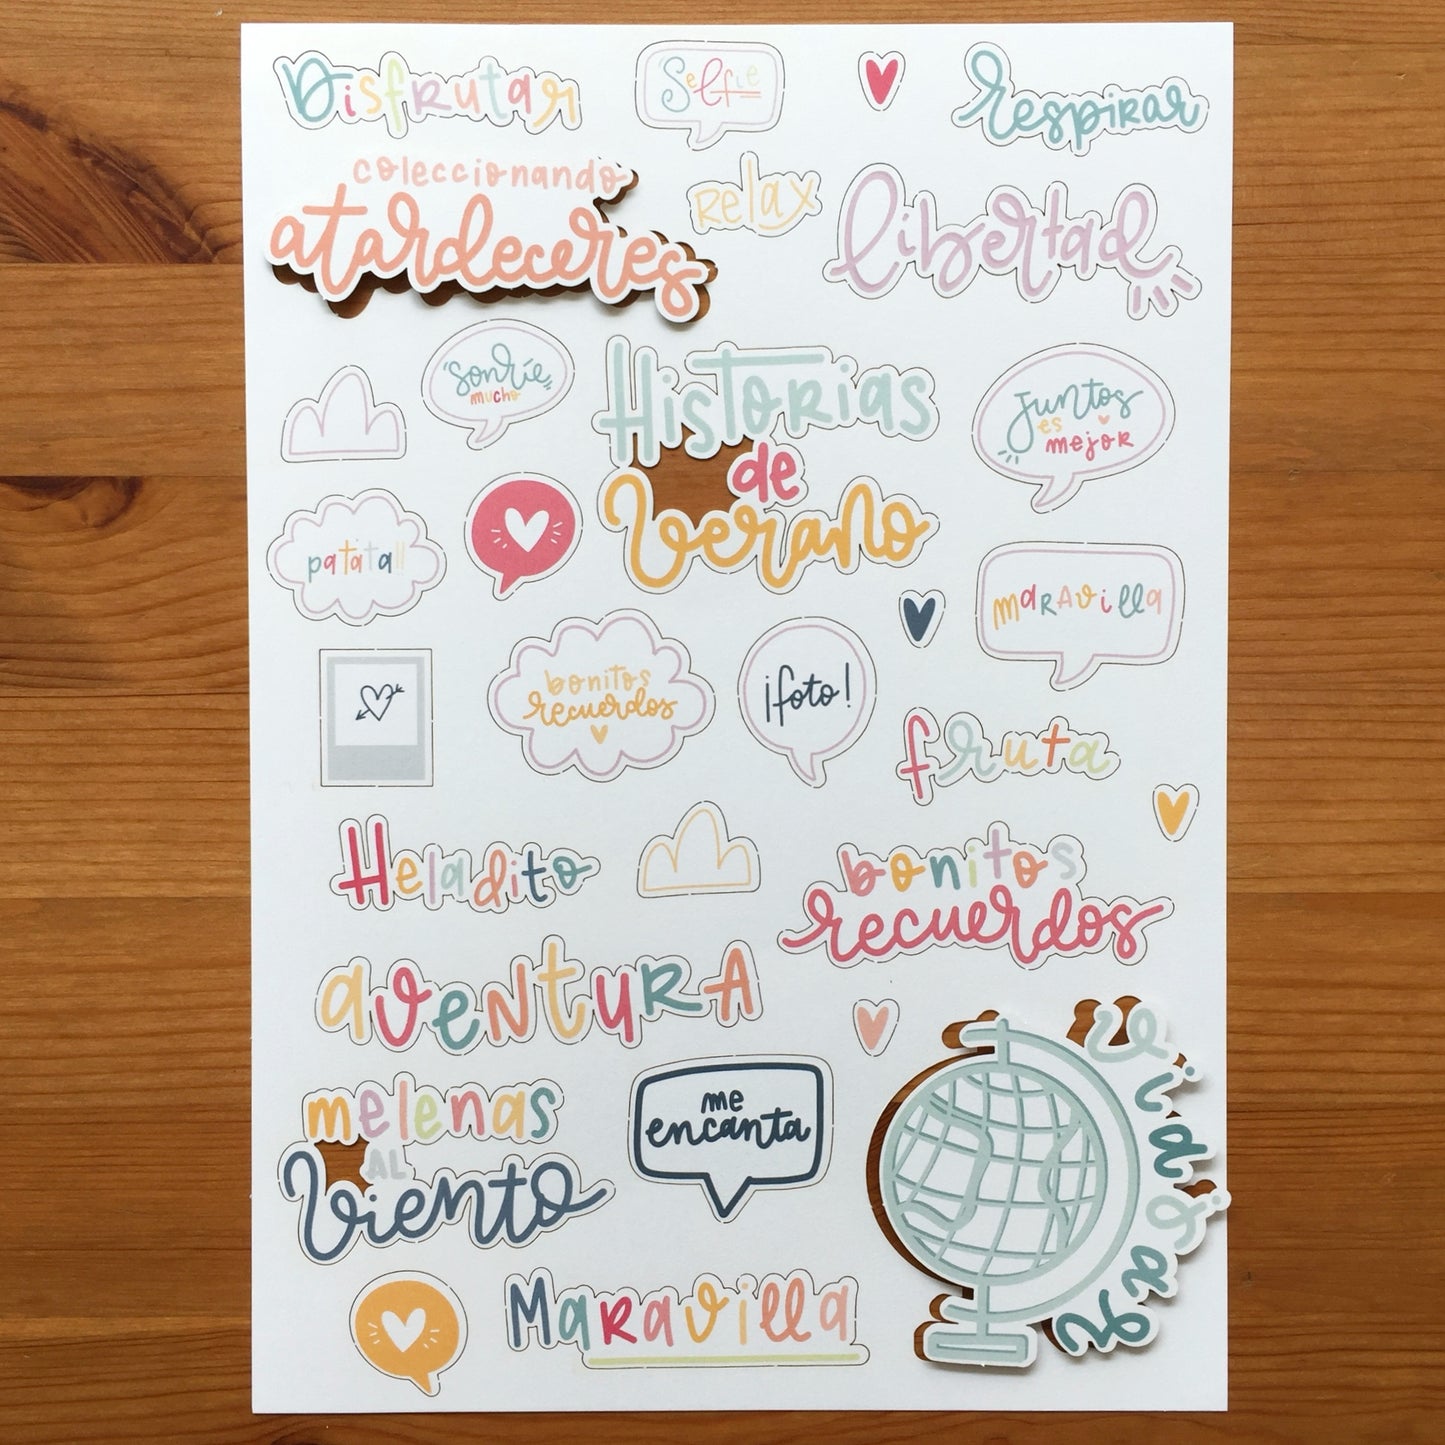 Disfrutar
Selfie
Respirar
coleccionando
atardeceres
relax
libertad
Sonríe
mucho
Historias
de
Verano
Juntos
es
mejor
patata!!
maravilla
bonitos
recuerdos
¡foto!
fruta
Heladito
bonitos
recuerdos
aventura
melenas
AL
Viento
me
encanta
vida
viajar
Maravilla